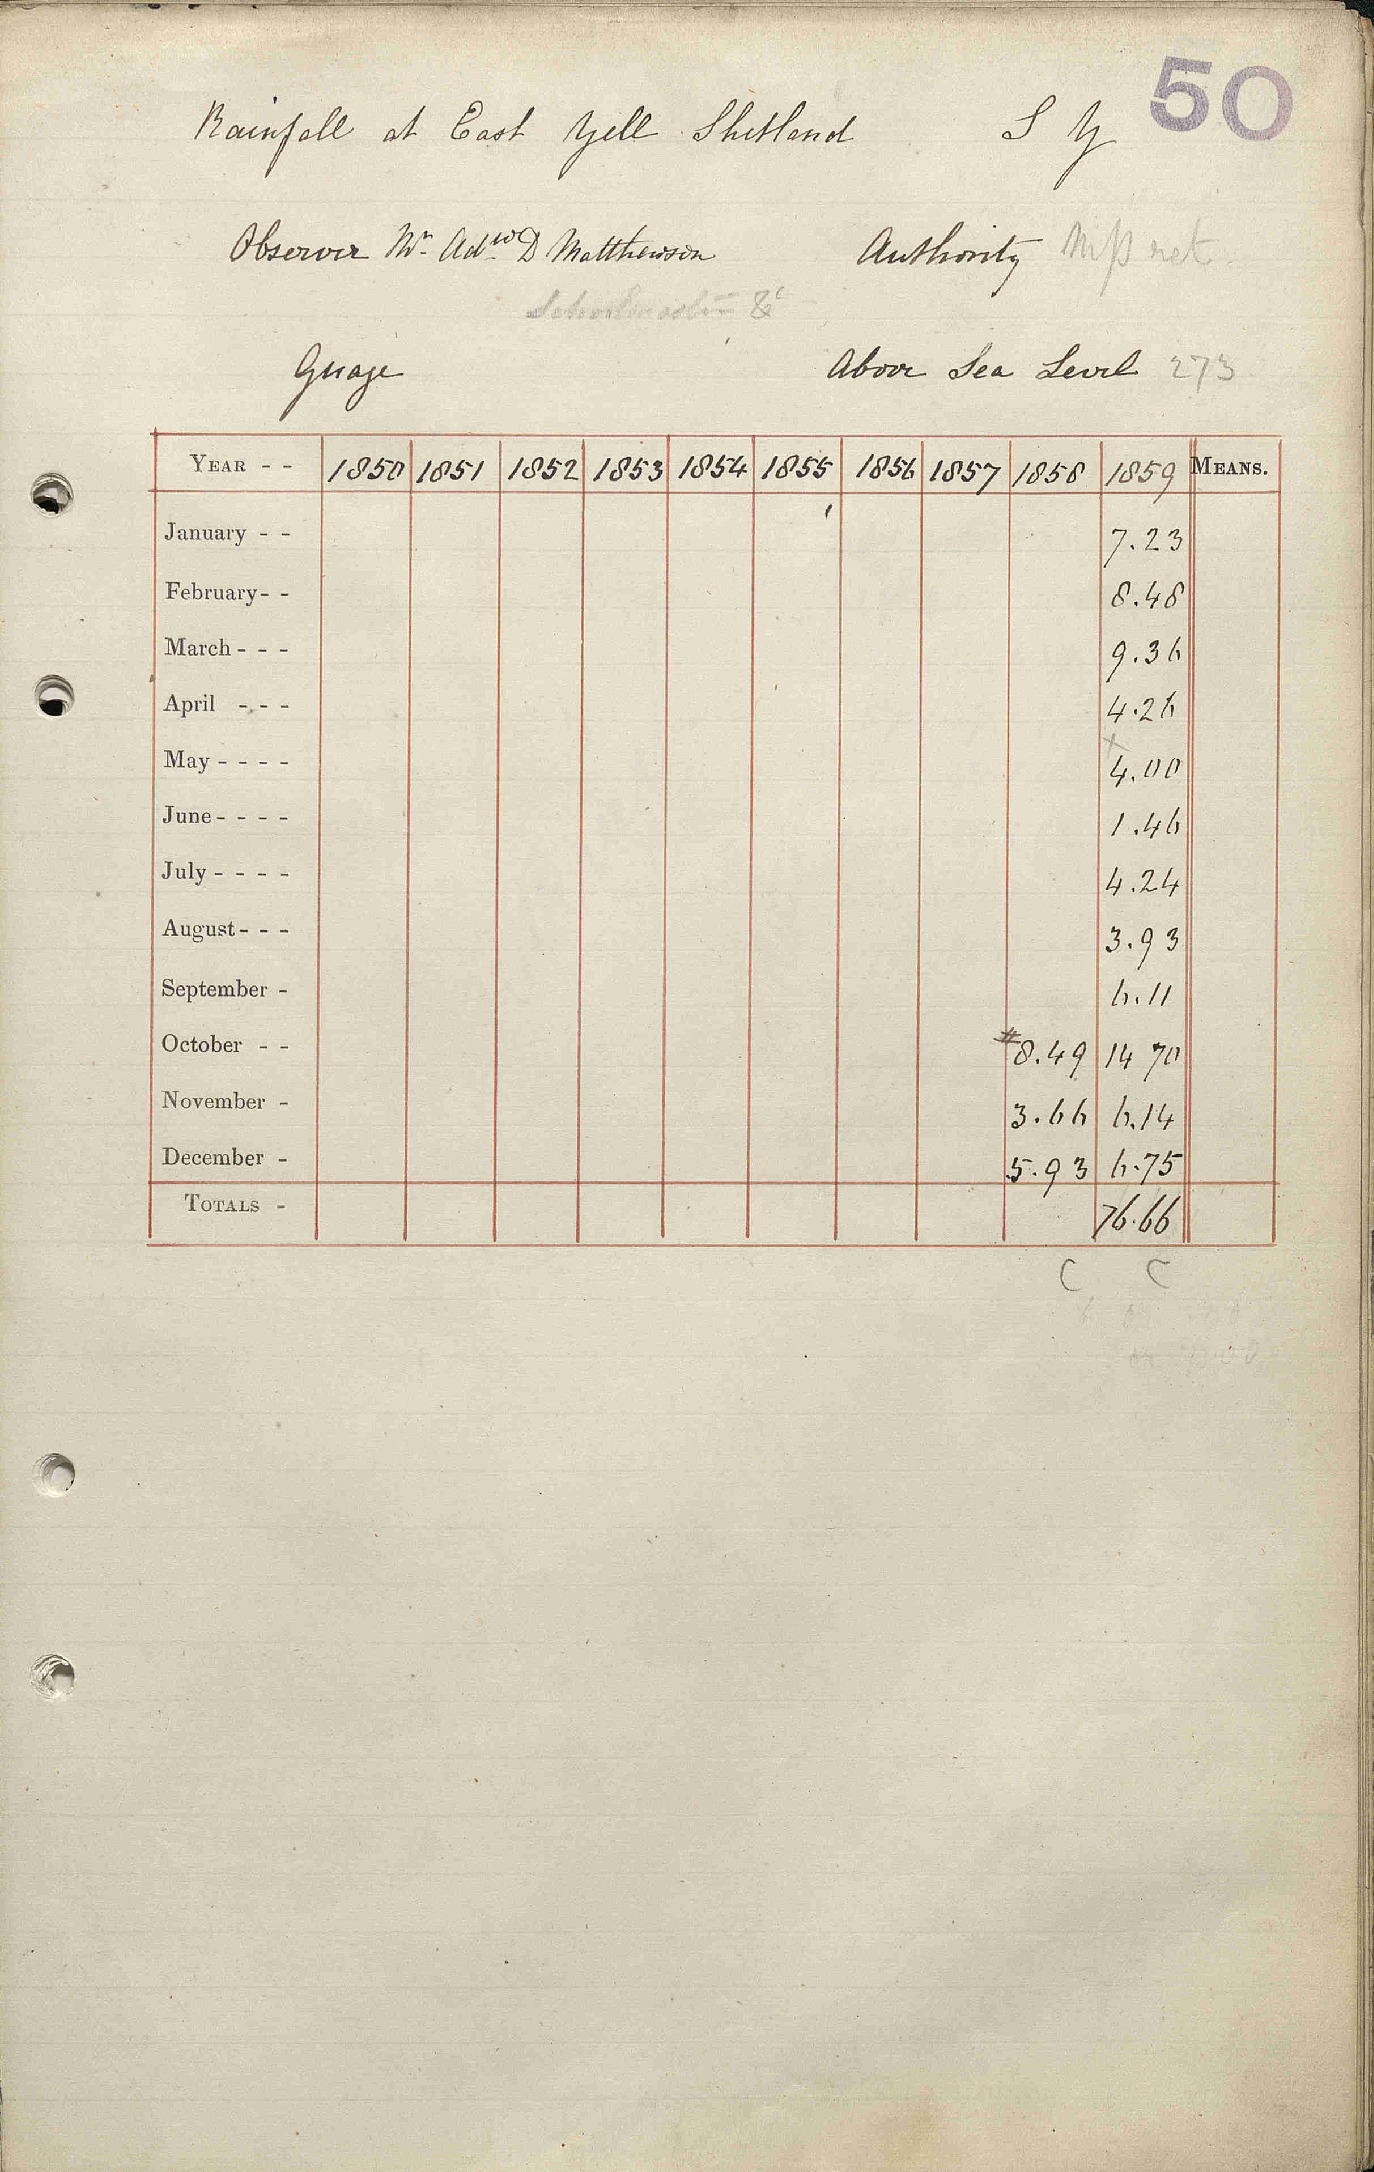 50
Rainfall at East Yell Shetland S Y
Observer Mr. Adw. D Matthewson Authority Mss ret.
Schoolmaster &c
Guage Above Sea Level 273
YEAR - - 1850 1851 1852 1853 1854 1855 1856 1857 1858 1859 MEANS.
January - - 7.23
February - - 8.48
March - - - 9.36
April - - - 4.26
May - - - - 4.00
June - - - - 1.46
July - - - - 4.24
August - - - 3.93
September - 6.11
October - - 8.49 14 70
November - 3.66 6.14
December - 5.93 6.75
TOTALS - 76.66
C C